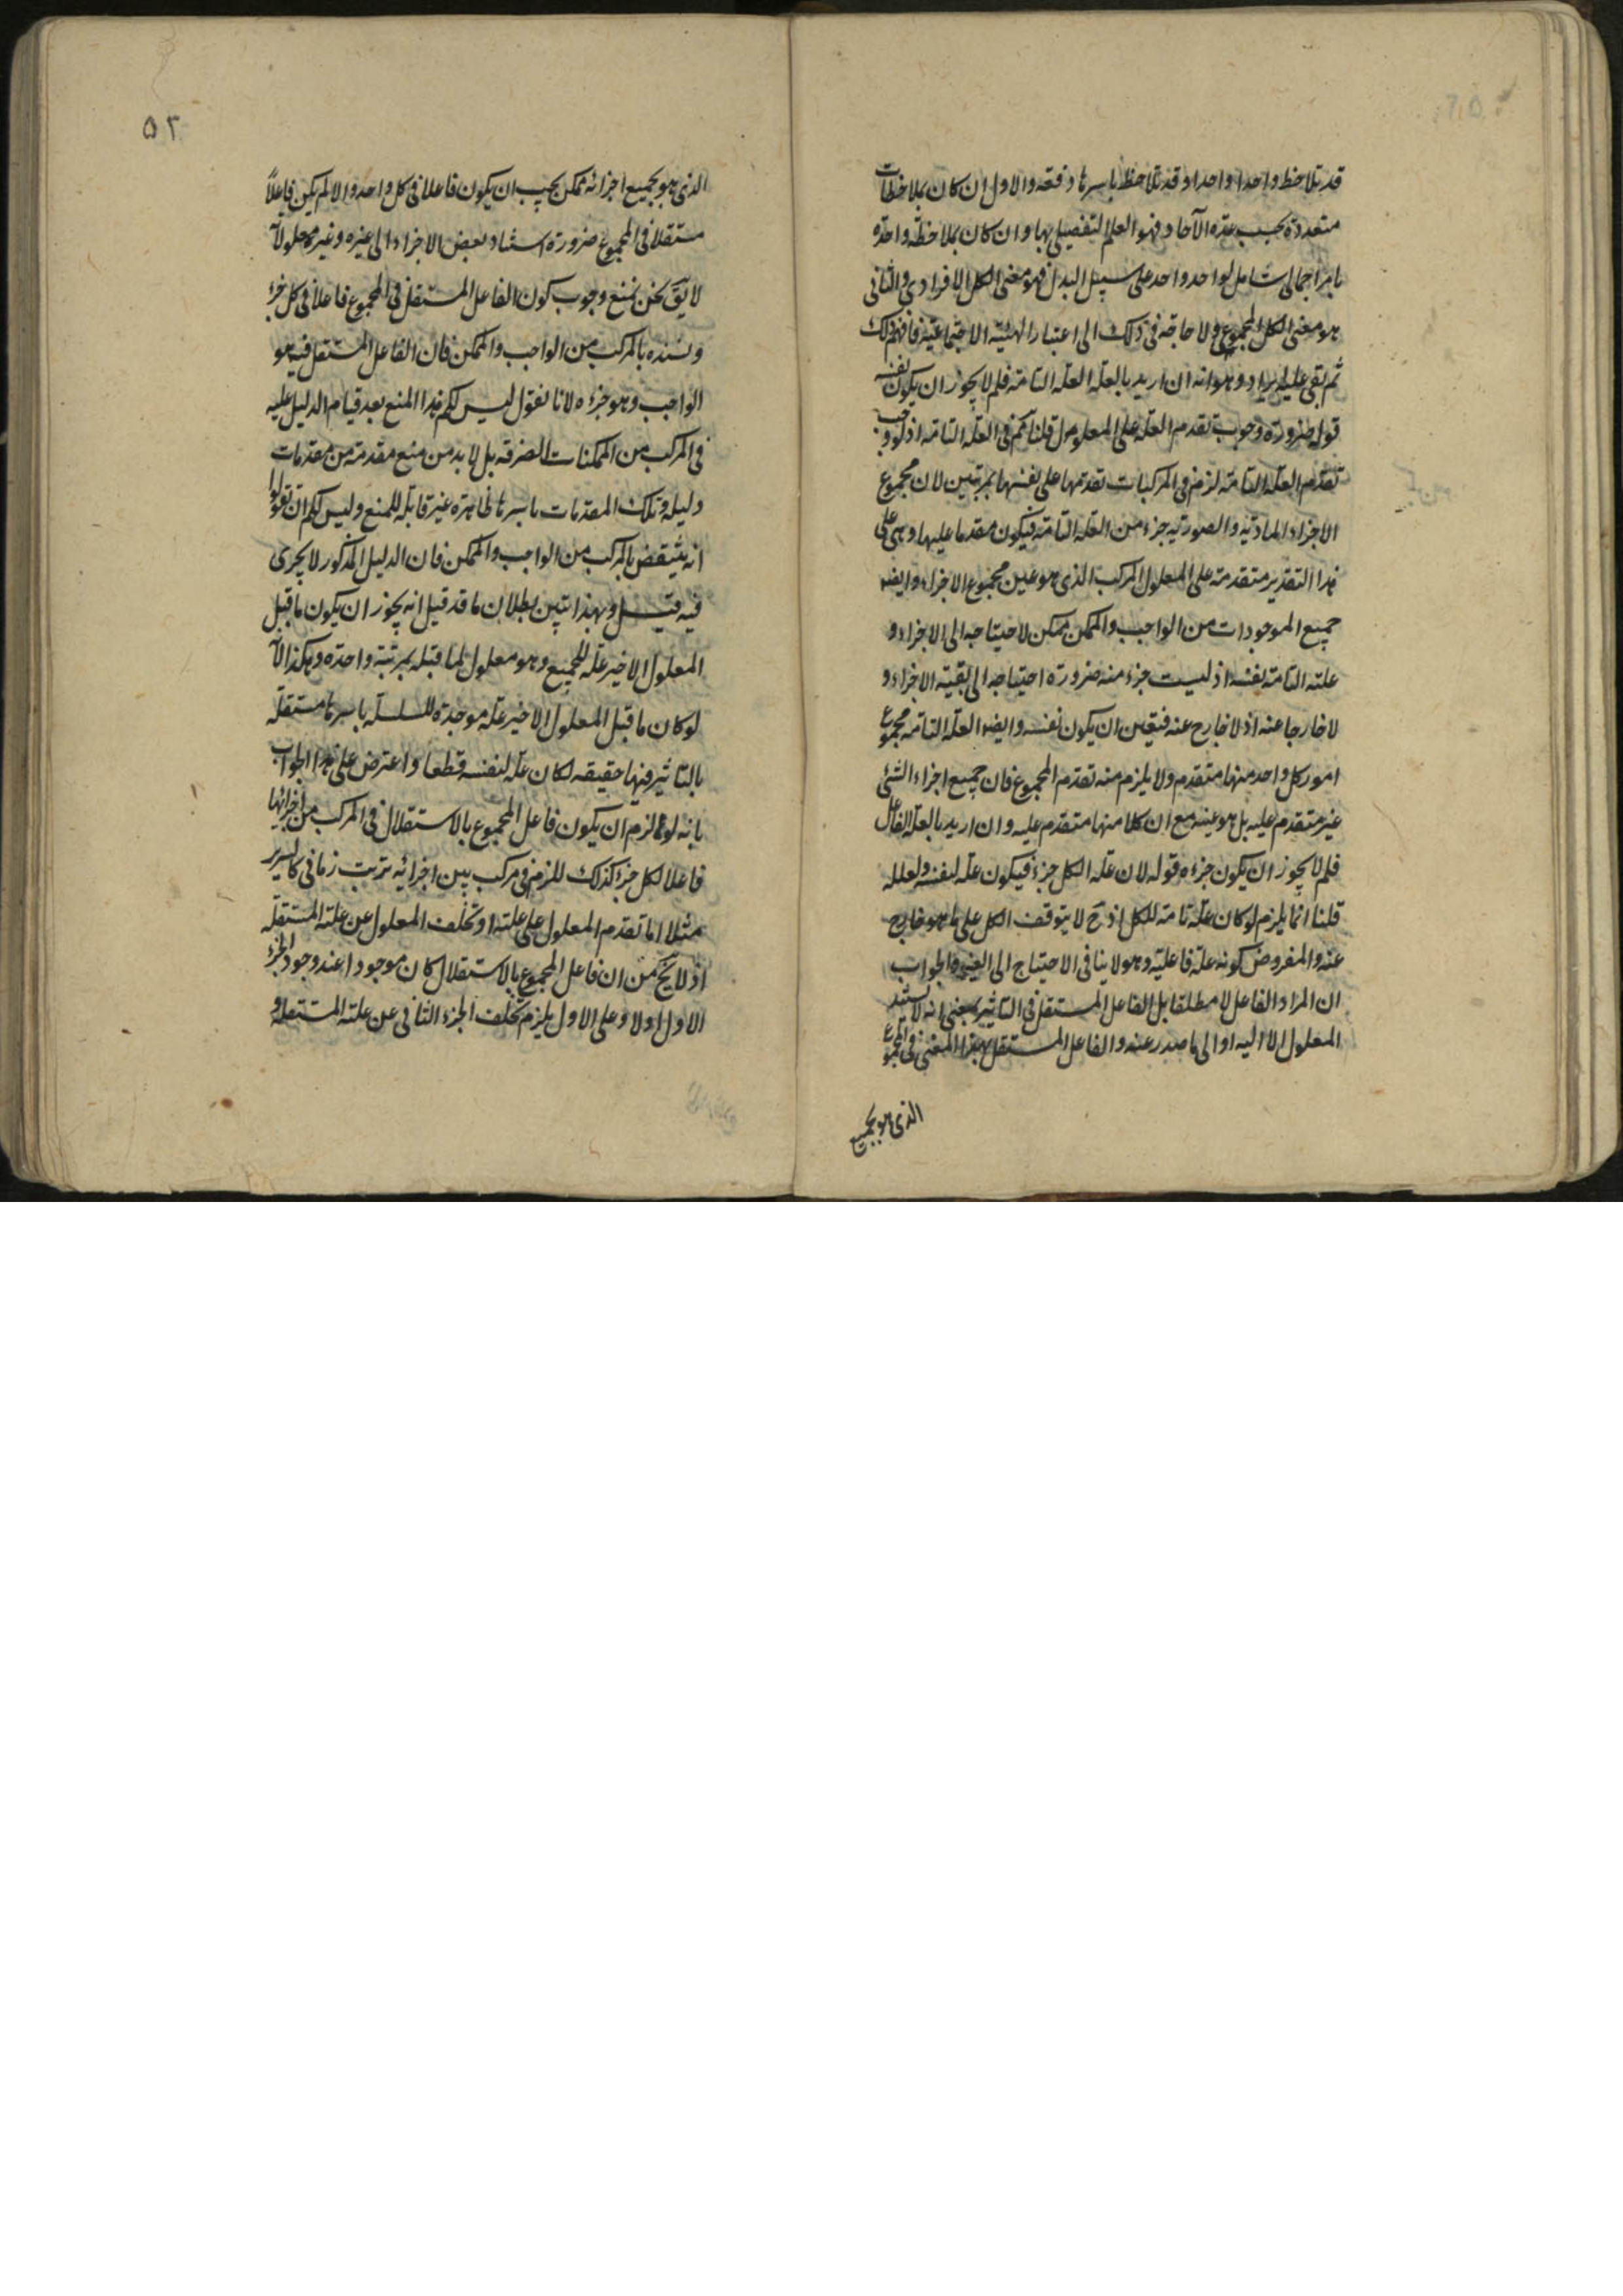 قد تلاحظ واحدا واحدا وقد تلاحظ باسرها دفعة والاول ان كان بملاحظات
متعددة بحسب عدة الآحاد فهو العلم التفصيلى بها وان كان بملاحظة واحدة
بامر اجمالى شامل لواحد واحد على سبيل البدل فهو معنى الكل الافرادى والثانى
هو معنى الكل المجموعى ولا حاجة فى ذلك الى اعتبار الهيئة الاجتماعية فافهم ذلك
ثم بقى عليه ايراد وهو انه ان اريد بالعلة العلة التامة فلم لا يجوز ان يكون نفسه
قوله ضرورة وجوب تقدم العلة على المعلول قلنا تم فى العلة التامة اذ لو وجب
تقدم العلة التامة لزم فى المركبات تقدمها على نفسها بمرتبين لان مجموع
الاجزاء المادية والصورية جزء من العلة التامة فيكون مقدما عليها وهى على
هذا التقدير متقدمة على المعلول المركب الذى هو عين مجموع الاجزاء وايضا
جميع الموجودات من الواجب والممكن ممكن لاحتياجه الى الاجزاء و
علته التامة نفسه اذ ليست جزء منه ضرورة احتياجه الى بقية الاجزاء و
لا خارجا عنه اذ لا خارج عنه فتعين ان يكون نفسه وايضا العلة التامة مجموع
امور كل واحد منها متقدم ولا يلزم منه تقدم المجموع فان جميع اجزاء الشئ
غير متقدم عليه بل هو عينه مع ان كلا منها متقدم عليه وان اريد بالعلة الفاعل
فلم لا يجوز ان يكون جزءه قوله لان علة الكل جزء فيكون علة لنفسه ولعلله
قلنا انما يلزم لو كان علة تامة للكل اذ ح لا يتوقف الكل على ما هو خارج
عنه والمفروض كونه علة فاعلية وهو لا ينافى الاحتياج الى الغير والجواب
ان المراد الفاعل لا مطلقا بل الفاعل المستقل فى التاثير بمعنى انه لا يستند
المعلول الا اليه او الى ما صدر عنه والفاعل المستقل بهذا المعنى فى المجموع
الذى هو بجميع
٥٢
الذى هو بجميع اجزائه ممكن يجب ان يكون فاعلا فى كل واحد والا لم يكن فاعلا
مستقلا فى المجموع ضرورة استناد بعض الاجزاء الى غيره وغير معلولاته
لا يق نحن نمنع وجوب كون الفاعل المستقل فى المجموع فاعلا فى كل جزء
ونسنده بالمركب من الواجب والممكن فان الفاعل المستقل فيه هو
الواجب وهو جزءه لانا نقول ليس لكم هذا المنع بعد قيام الدليل عليه
فى المركب من الممكنات الصرفة بل لا بد من منع مقدمة من مقدمات
دليله وتلك المقدمات باسرها ظاهرة غير قابلة للمنع وليس لكم ان تقولوا
انه ينتقض بالمركب من الواجب والممكن فان الدليل المذكور لا يجرى
فيه قيل وبهذا تبين بطلان ما قد قيل انه يجوز ان يكون ما قبل
المعلول الاخير علة للجميع وهو معلول لما قبله بمرتبة واحدة وهكذا لانه
لو كان ما قبل المعلول الاخير علة موجدة للسلسلة باسرها مستقلة
بالتاثير فيها حقيقة لكان علة لنفسه قطعا واعترض على هذا الجواب
بانه لو لزم ان يكون فاعل المجموع بالاستقلال فى المركب من اجزائها
فاعلا لكل جزء كذلك للزم فى مركب بين اجزائه ترتب زمانى كالسرير
مثلا اما تقدم المعلول على علته او تخلف المعلول عن علته المستقلة
اذ لا يخ من ان فاعل المجموع بالاستقلال كان موجودا عند وجود الجزء
الاول اولا وعلى الاول يلزم تخلف الجزء الثانى عن علته المستقلة و